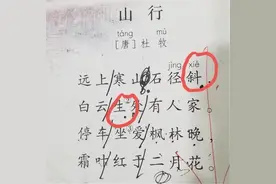 山行
táng mù
[唐]杜牧
jìng xié
远上寒山石径斜,
白云生处有人家
停车坐爱枫林晚,
霜叶红于二月花